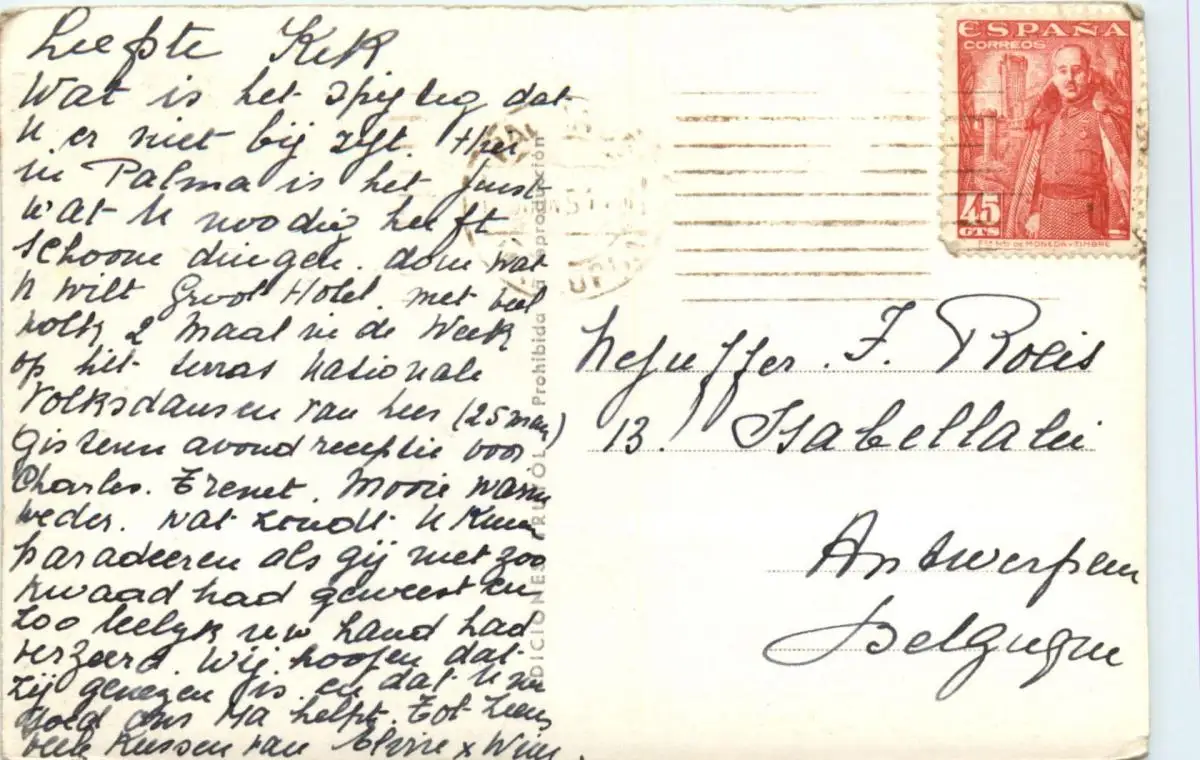 Liefste Kek
Wat is het spijtig dat
U er niet bij zijt. Hier
in Palma is het juist
wat U noodig heeft
schoone dingen. doen wat
U wilt Groot Hotel. met veel
volk, 2 maal in de Week
op het terras nationale
Volksdansen van hier (25 man)
Gisteren avond receptie voor
Charles. Trenet. Mooie warm
weder. wat zoudt U kun
paradeeren als gij niet zoo
kwaad had geweest en
zoo leelijk uw hand had
verzeerd. Wij hoopen dat
zij genezen is en dat U nu
goed ons Ma helpt. Tot ziens
veel kussen van Elvire x Wim
EDICIONES TRUYOL Prohibida la reproducción
ESPAÑA
CORREOS
45
CTS
F.ca N.al DE MONEDA Y TIMBRE
Mejuffer. J. Roels
13 Isabellalei
Antwerpen
Belguque